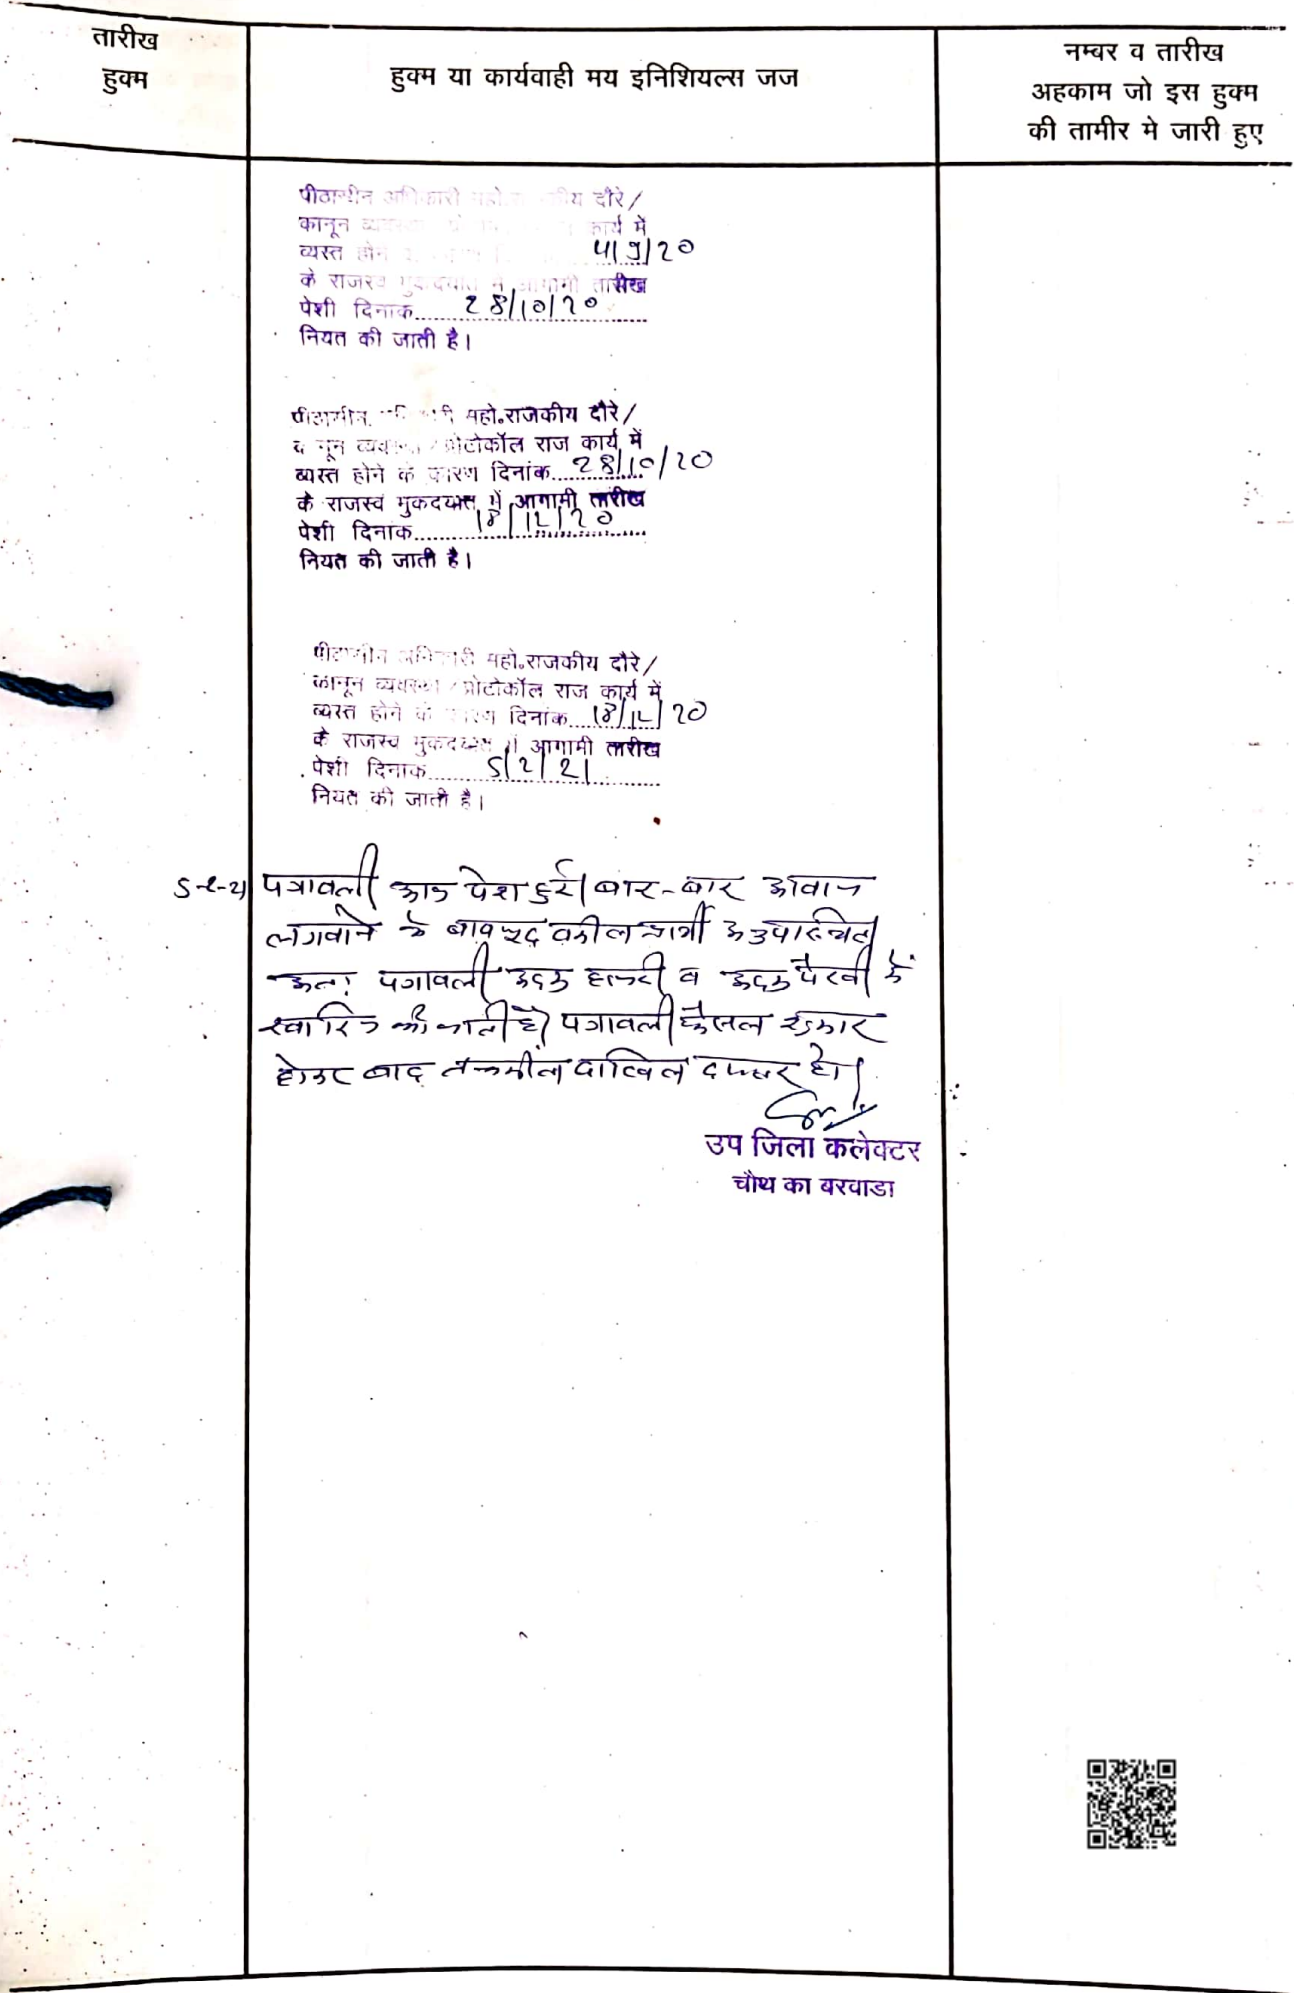 तारीख
हुक्म
हुक्म या कार्यवाही मय इनिशियल्स जज
नम्बर व तारीख
अहकाम जो इस हुक्म
की तामीर मे जारी हुए
पीठासीन अधिकारी महो. राजकीय दौरे/
कानून व्यवस्था कार्य में
व्यस्त होने 4/9/20
के राजस्व मुकदमात में आगामी तारीख
पेशी दिनांक 28/10/20
नियत की जाती है।
पीठासीन अधिकारी महो.राजकीय दौरे/
कानून व्यवस्था/प्रोटोकॉल राज कार्य में
व्यस्त होने के कारण दिनांक 28/10/20
के राजस्व मुकदमात में आगामी तारीख
पेशी दिनांक 18/12/20
नियत की जाती है।
पीठासीन अधिकारी महो.राजकीय दौरे/
कानून व्यवस्था/प्रोटोकॉल राज कार्य में
व्यस्त होने के कारण दिनांक 18/12/20
के राजस्व मुकदमात में आगामी तारीख
पेशी दिनांक 5/2/21
नियत की जाती है।
5-2-21 पत्रावली आज पेश हुई। बार-बार आवाज
लगवाने के बावजूद वकील प्रार्थी अनुपस्थित।
अतः पत्रावली अदम हाजरी व अदम पैरवी में
खारिज की जाती है। पत्रावली फैसल शुमार
होकर बाद तकमील दाखिल दफ्तर हो।
उप जिला कलेक्टर
चौथ का बरवाडा